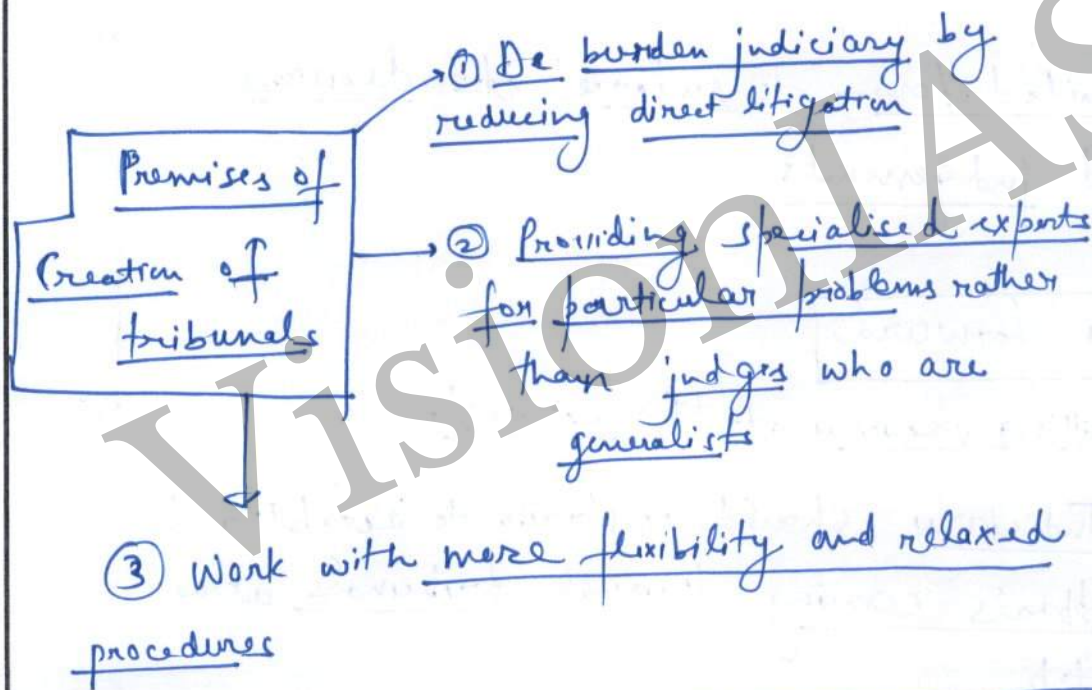 Premises of
Creation of
tribunals
① De burden judiciary by
reducing direct litigation
② Providing specialised experts
for particular problems rather
than judges who are
generalists
③ Work with more flexibility and relaxed
procedures
VisionIAS